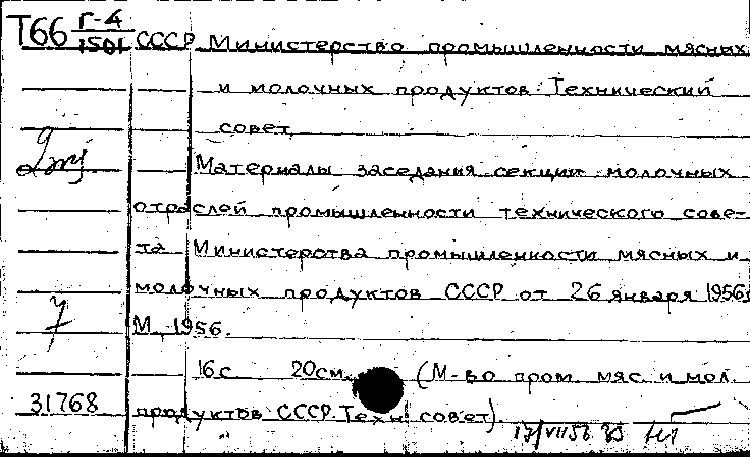 Т66 Г-4
1501 СССР Министерство промышленности мясных
и молочных продуктов. Технический
совет.
Материалы заседания секции молочных
отраслей промышленности технического сове-
та Министерства промышленности мясных и
молочных продуктов СССР от 26 января 1956г
М., 1956.
7
16 с. 20 см. (М-во пром. мяс. и мол.
31768 продуктов СССР. Техн. совет).
17/VII 56